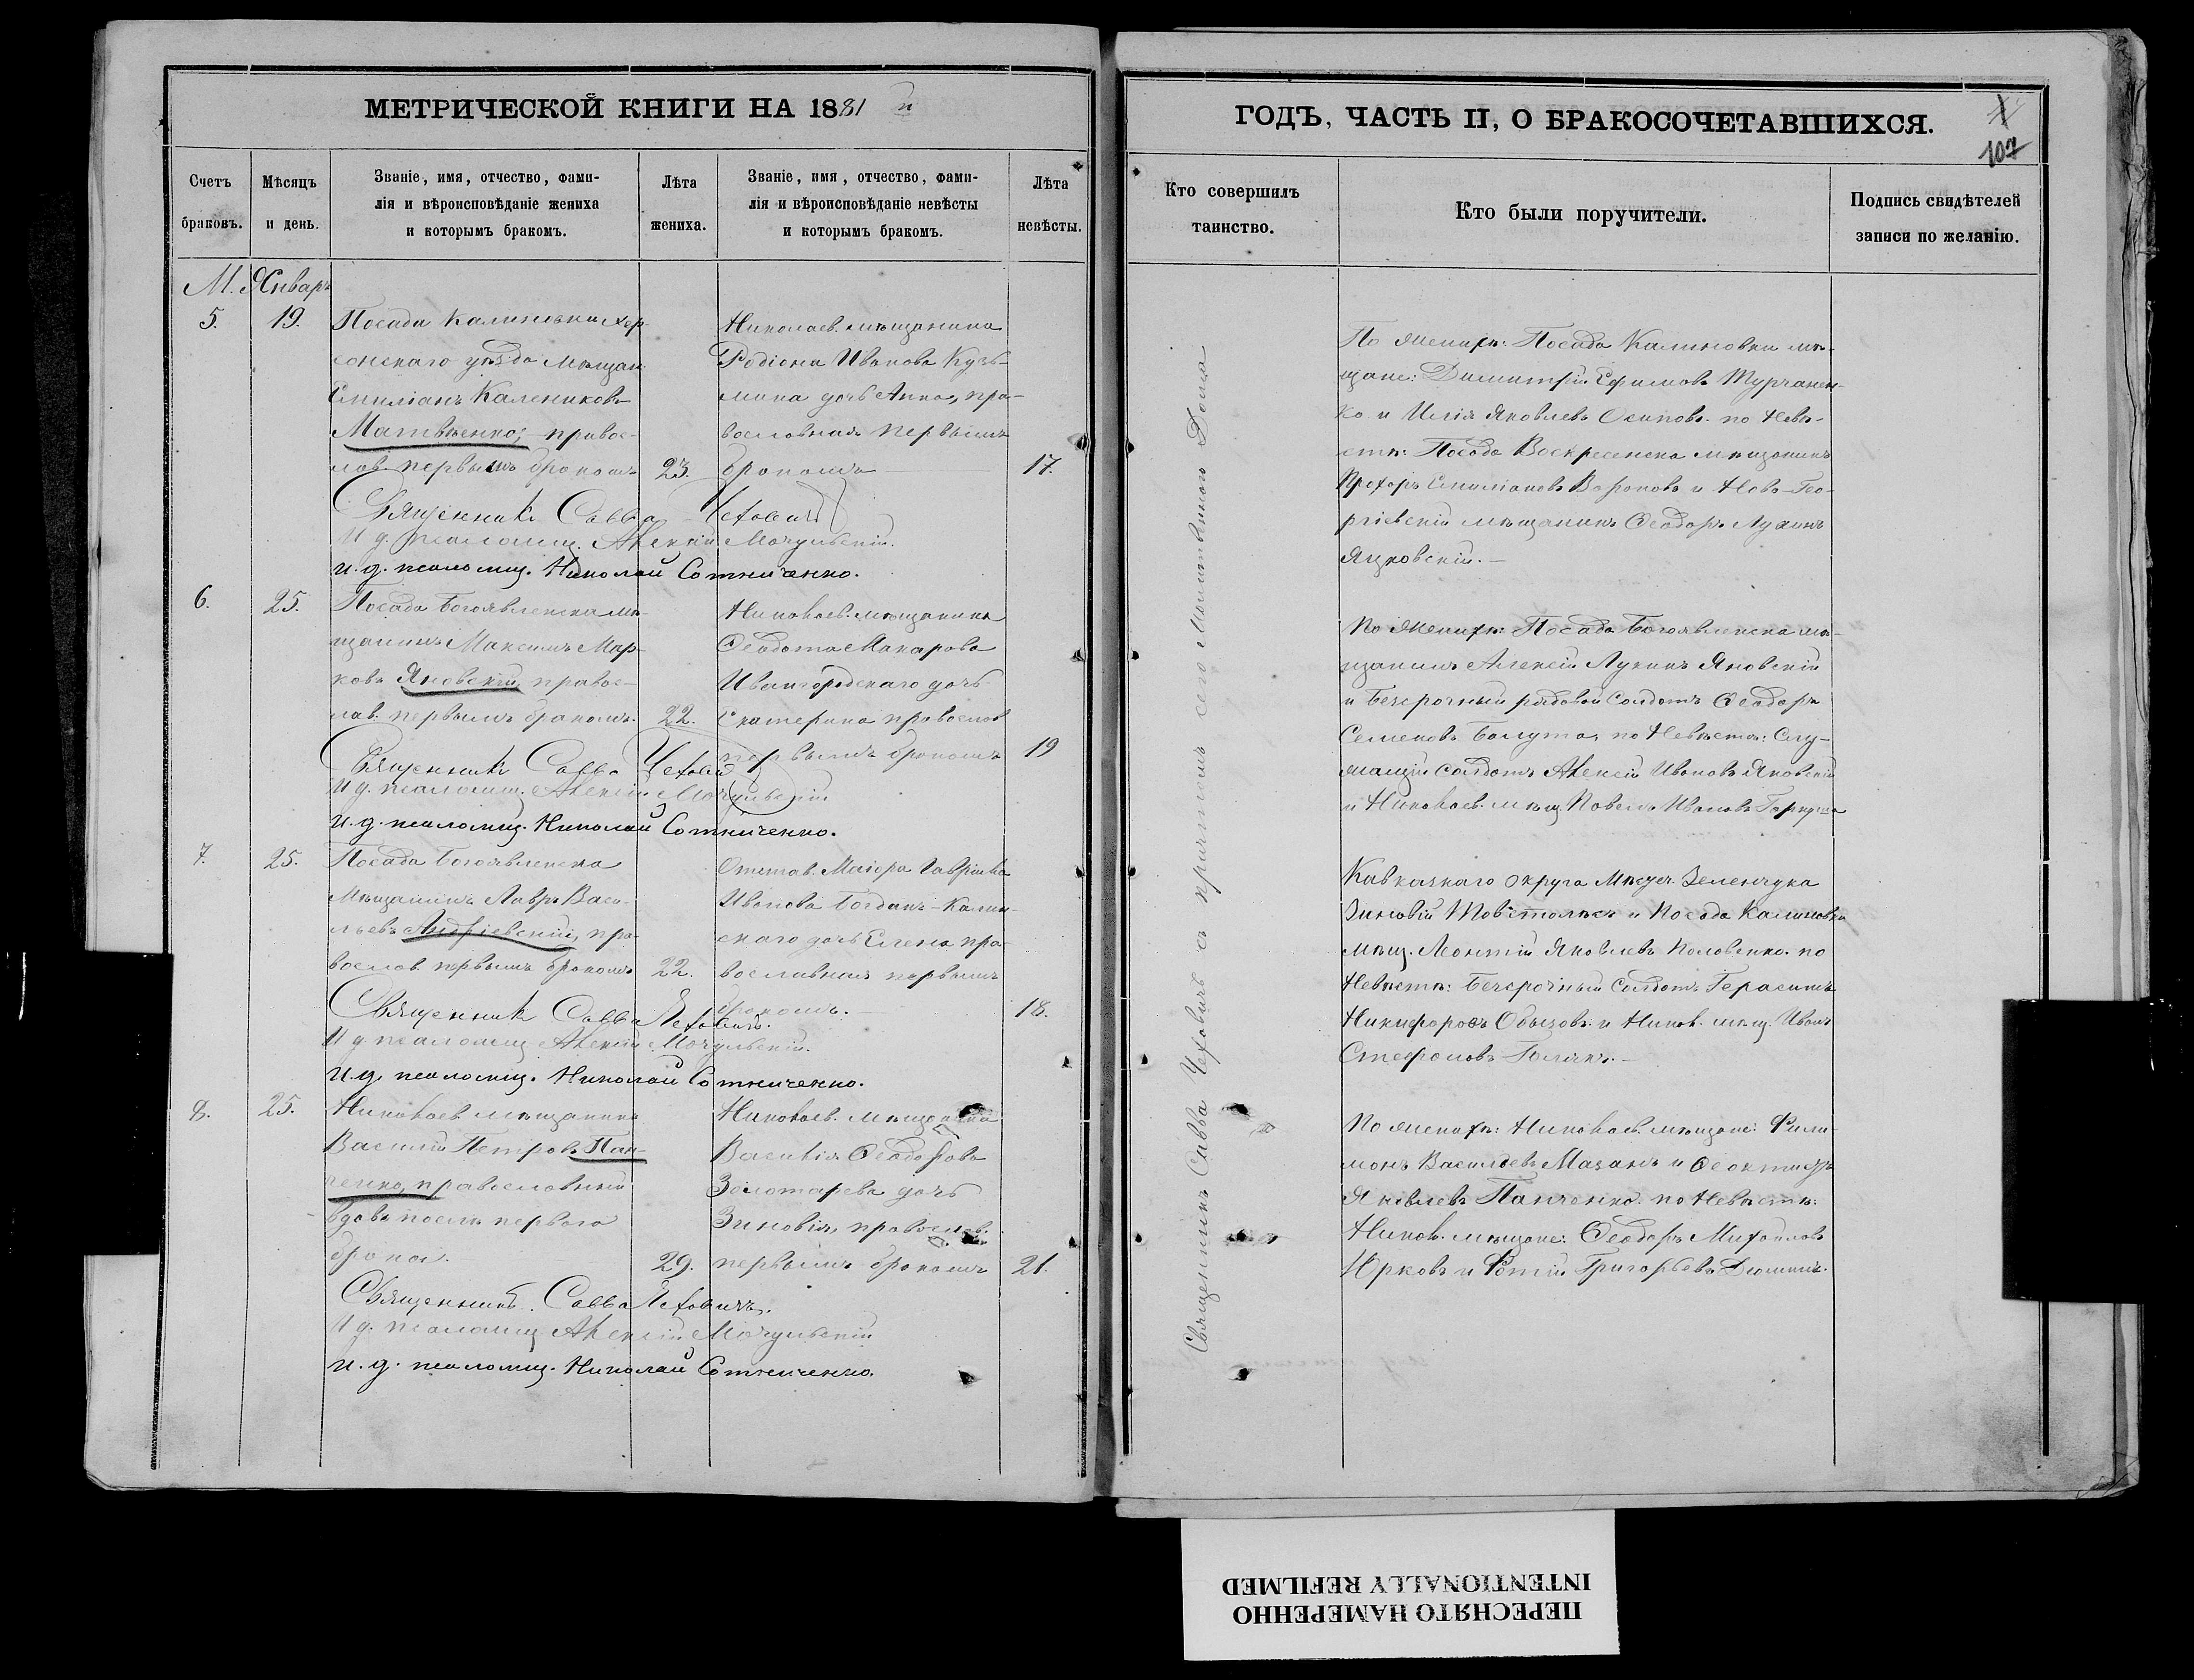 МЕТРИЧЕСКОЙ КНИГИ НА 1881
Счетъ браковъ.
Мѣсяцъ и день.
Званіе, имя, отчество, фами-
лія и вѣроисповѣданіе жениха
и которымъ бракомъ.
Лѣта жениха.
Званіе, имя, отчество, фами-
лія и вѣроисповѣданіе невѣсты
и которымъ бракомъ.
Лѣта невѣсты.
М. Январь
5. 19.
Посада Калиновки Хер-
сонскаго уѣзда мѣщан.
Емиліанъ Калениковъ
Матвѣенко, правос-
лав. первымъ бракомъ 23.
Николаев. мѣщанина
Родіона Иванова Кузь-
мина дочь Анна, пра-
вославная первымъ
бракомъ 17.
Священникъ Савва Чеховичъ
И д. псаломщ. Алексій Мочульскій.
И. д. псаломщ. Николай Сотниченко.
6. 25.
Посада Богоявленска мѣ-
щанинъ Максимъ Мар-
ковъ Яновскій, правос-
лав. первымъ бракомъ. 22.
Николаев. мѣщанина
Ѳеодота Макарова
Ивангородскаго дочь
Екатерина православ
первымъ бракомъ 19
Священникъ Савва Чеховичъ
И д. псаломщ. Алексій Мочульскій
И. д. псаломщ. Николай Сотниченко.
7. 25.
Посада Богоявленска
мѣщанинъ Лавръ Васи-
льевъ Андріевскій, пра-
вослав. первымъ бракомъ 22.
Отстав. Маіора Гавріила
Иванова Богданъ-Калин-
скаго дочь Елена пра-
вославная первымъ
бракомъ. 18.
Священникъ Савва Чеховичъ.
И д псаломщ Алексій Мочульскій.
И. д. псаломщ. Николай Сотниченко.
8. 25.
Николаев мѣщанинъ
Василій Петровъ Пан-
ченко, православный
вдовъ послѣ перваго
брака. 29.
Николаев. мѣщанина
Василія Ѳеодорова
Золотарева дочь
Зиновія, православ.
первымъ бракомъ 21.
Священникъ. Савва Чеховичъ.
И д. псаломщ Алексій Мочульскій
И. д. псаломщ. Николай Сотниченко.
ГОДЪ, ЧАСТЬ II, О БРАКОСОЧЕТАВШИХСЯ.
107
Кто совершилъ таинство.
Кто были поручители.
Подпись свидѣтелей записи по желанію.
Священникъ Савва Чеховичъ съ причтомъ
По женихѣ: Посада Калиновки мѣ-
щане: Димитрій Ефимовъ Турчанен-
ко и Илія Яковлевъ Осиповъ. по Невѣ-
стѣ: Посада Воскресенска мѣщанинъ
Прохоръ Емиліановъ Вороновъ и Ново-Гео-
ргіевскій мѣщанинъ Ѳеодоръ Лукинъ
Яцковскій.
По Женихѣ: Посада Богоявленска мѣ-
щанинъ Алексій Лукинъ Яновскій
и безсрочный рядовой солдатъ Ѳеодоръ
Семеновъ Балута, по Невѣстѣ: Слу-
жащій солдатъ Алексій Ивановъ Яновскій
и Николаев. мѣщ. Павелъ Ивановъ
Кавказкаго округа Зеленчука
Зиновій и Посада Калиновки
мѣщ. Леонтій Яковлевъ Половенко. по
Невѣстѣ: Безсрочный Солдатъ Герасимъ
Никифоровъ и Никол. мѣщ. Иванъ
Стефановъ
По женихѣ: Николаев. мѣщане: Фили-
монъ Васильевъ Мазанъ и Ѳеоктистъ
Яковлевъ Панченко. по Невѣстѣ:
Никол. мѣщане: Ѳеодоръ Михайловъ
Юрковъ и Фотій Григорьевъ Дюминъ.
ПЕРЕСНЯТО НАМЕРЕННО
INTENTIONALLY REFILMED